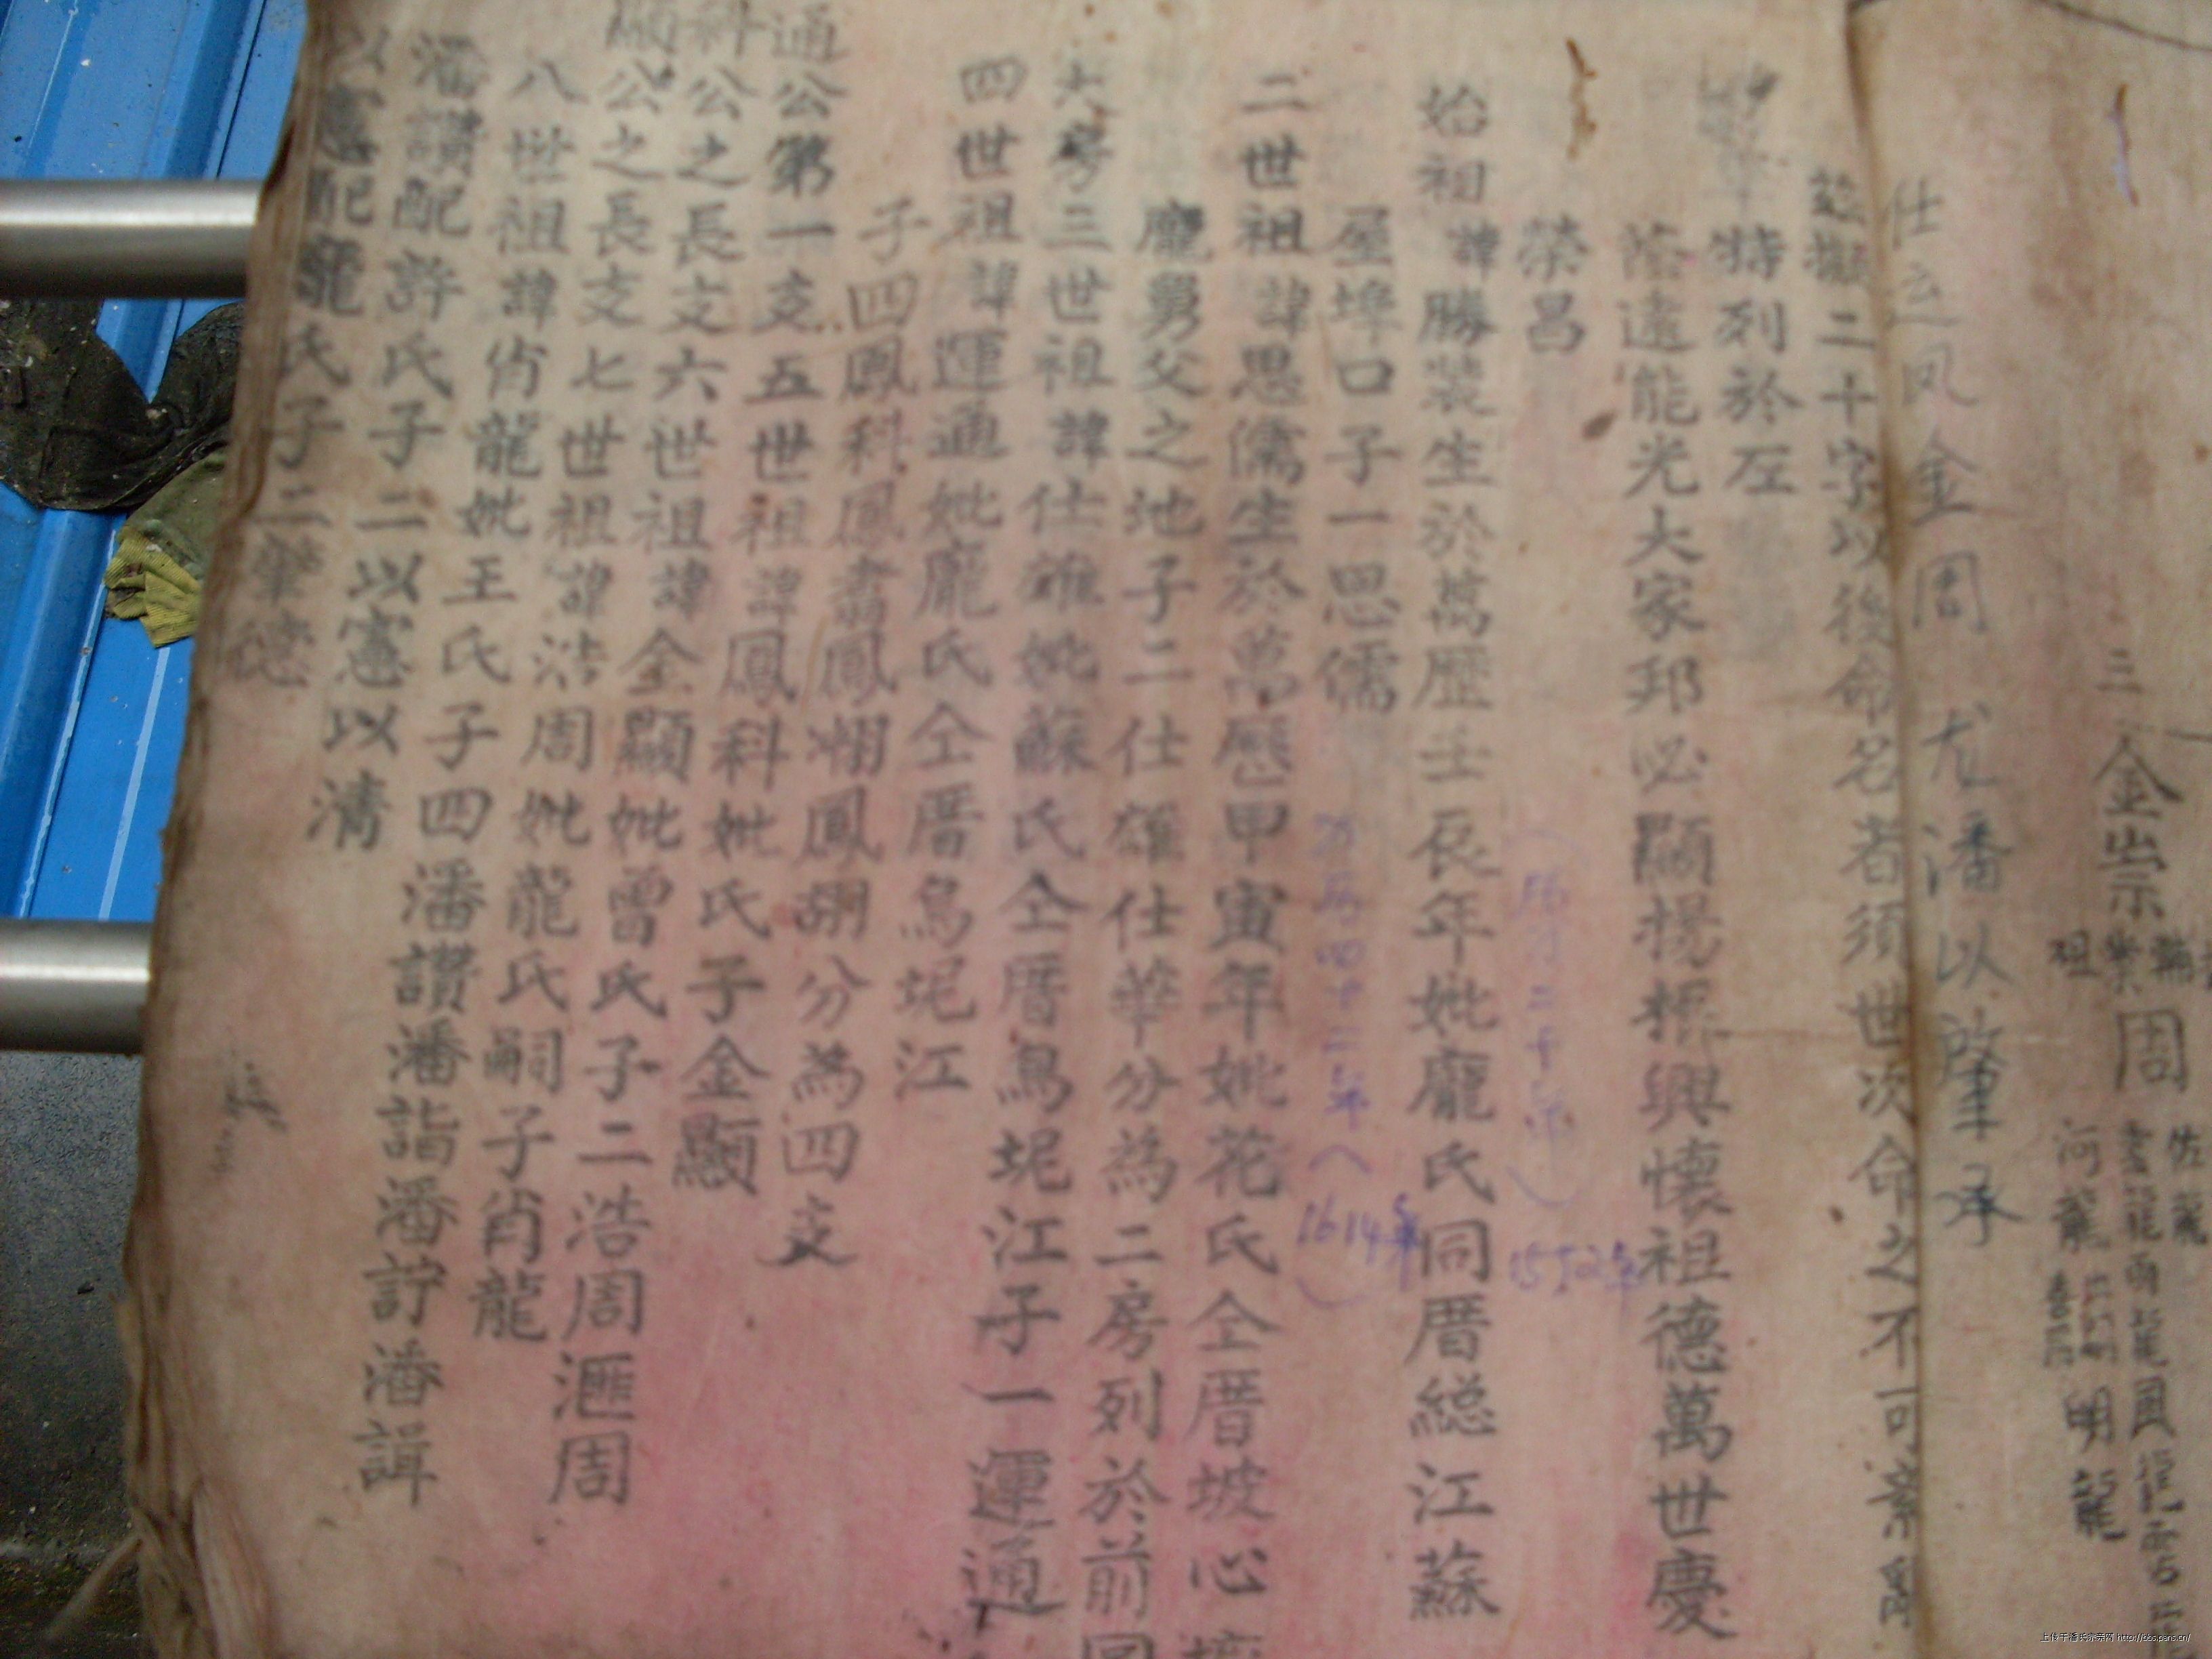 三 金 崇 周
明龍
仕 運 凤 金 周 龙 潘 以 肇 承
二十字以後命名者須世次命之不可紊亂
特列於左
蔭遠能光大家邦必顯揚振興懷祖德萬世慶
榮昌
1552年
始祖諱勝裝生於萬歷壬辰年妣龐氏同厝総江蘇
屋埤口子一思儒
万历四十二年(1614年)
二世祖諱思儒生於萬歷甲寅年妣花氏仝厝坡心
龐舅父之地子二仕雄仕華分為二房列於前
大房三世祖諱仕雄妣蘇氏仝厝烏坭江子一運通
四世祖諱運通妣龐氏仝厝烏坭江
子四鳳科鳳翥鳳翊鳳翮分為四支
通公第一支五世祖諱鳳科妣氏子金顯
科公之長支六世祖諱金顯妣曾氏子二浩周滙周
顯公之長支七世祖諱浩周妣龍氏嗣子肖龍
八世祖諱肖龍妣王氏子四潘讚潘詣潘訏潘諿
潘讚配許氏子二以憲以清
以憲配龐氏子二肇德
上传于潘氏宗亲网 http://bbs.pans.cn/